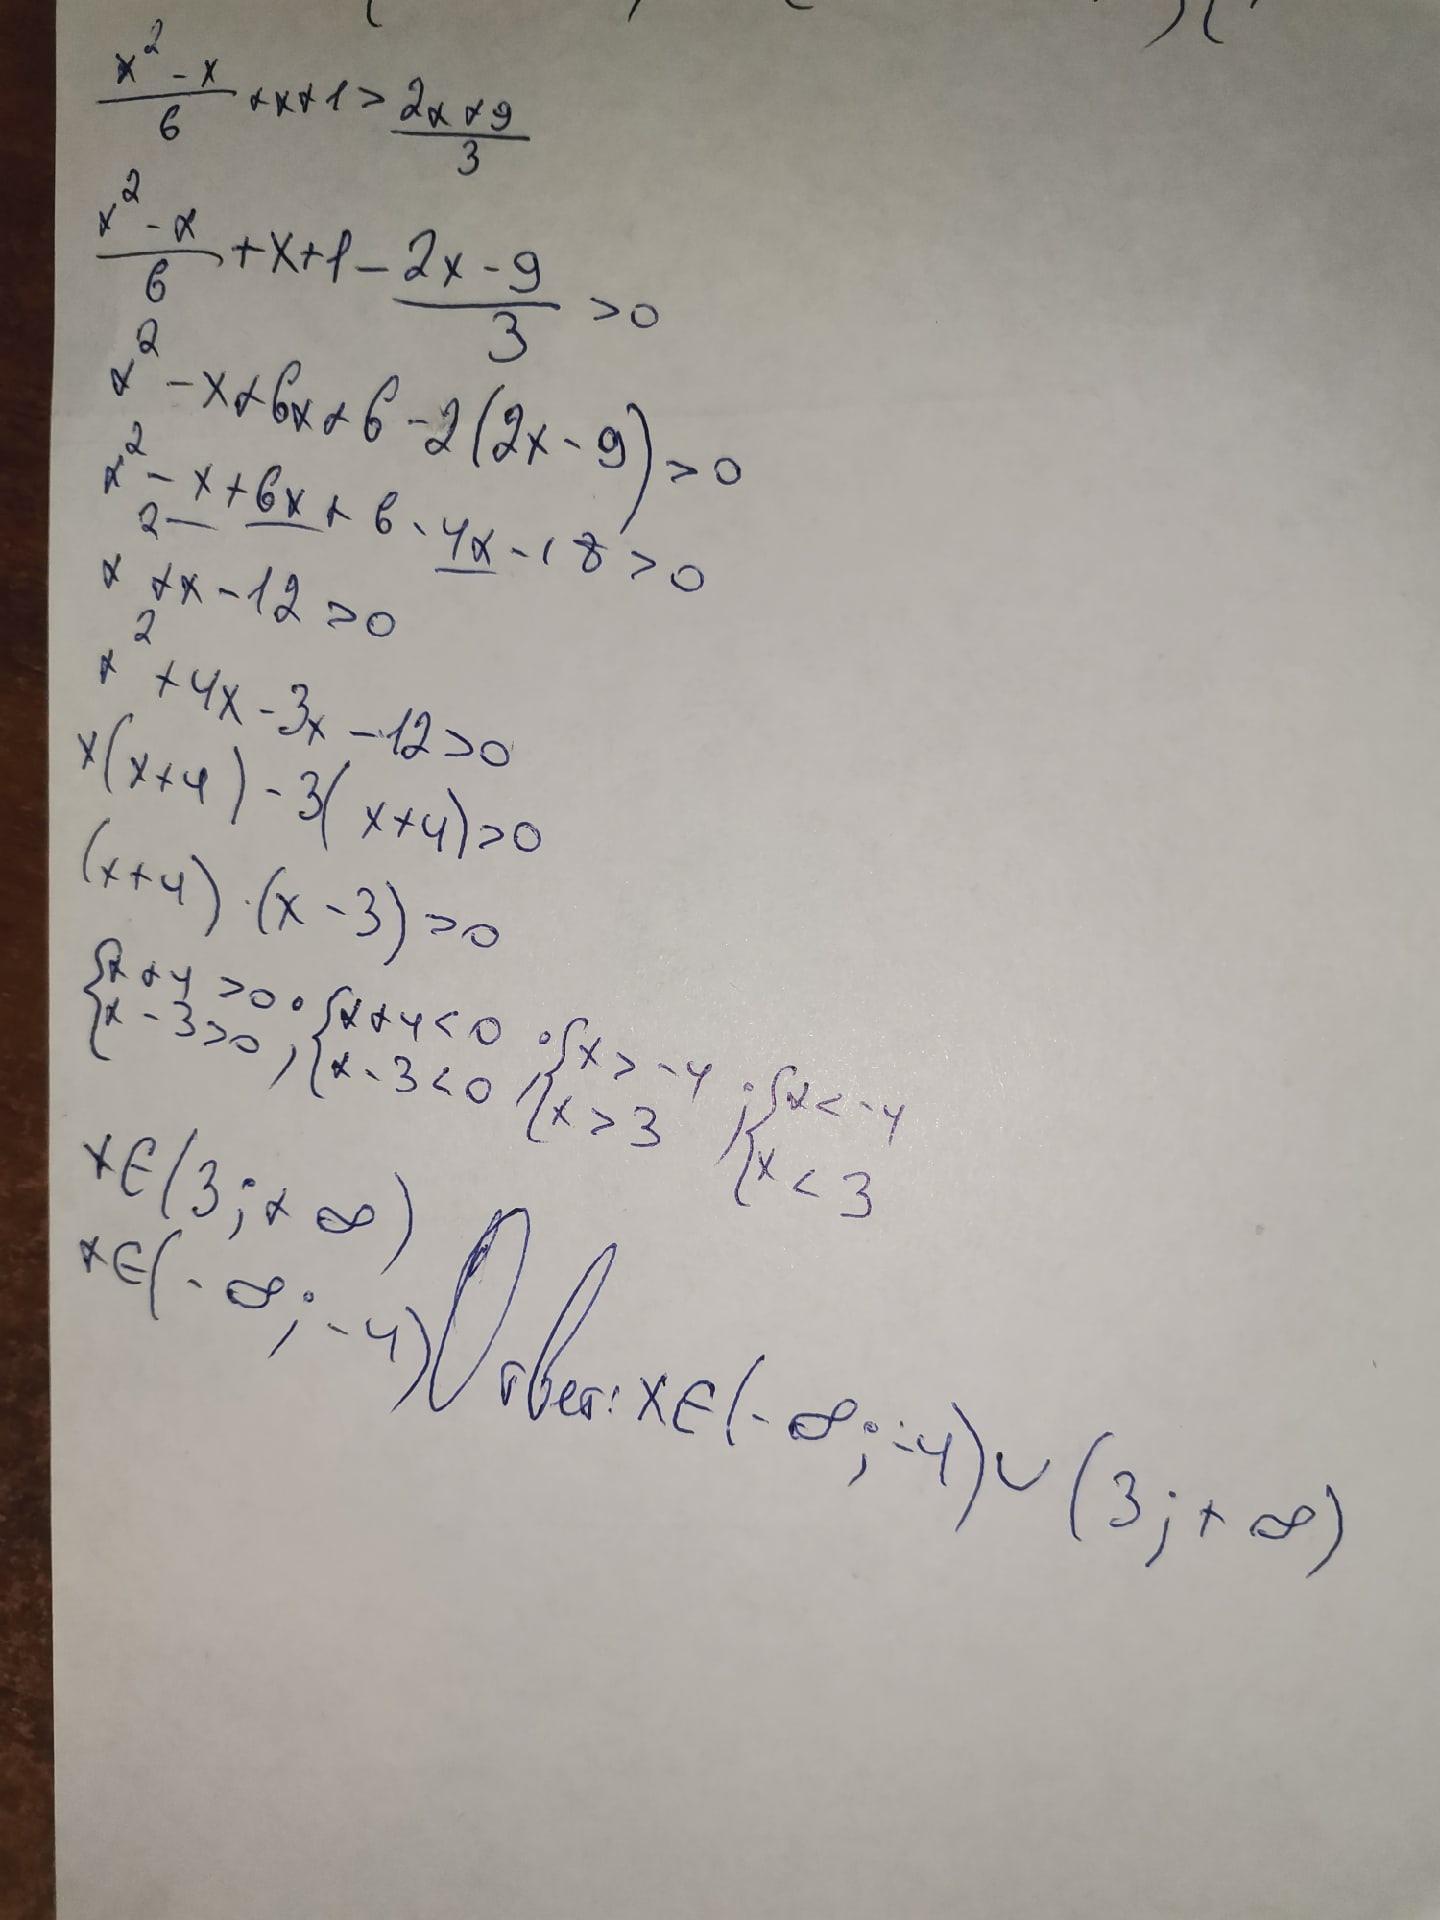 x² - x / 6 + x + 1 > 2x + 9 / 3
x² - x / 6 + x + 1 - 2x - 9 / 3 > 0
x² - x + 6x + 6 - 2(2x - 9) > 0
x² - x + 6x + 6 - 4x - 18 > 0
x² + x - 12 > 0
x² + 4x - 3x - 12 > 0
x(x+4) - 3(x+4) > 0
(x+4) · (x - 3) > 0
{x + 4 > 0 ; {x + 4 < 0 ; {x > -4 ; {x < -4
{x - 3 > 0 ; {x - 3 < 0 ; {x > 3 ; {x < 3
x ∈ (3; + ∞)
x ∈ (- ∞; - 4) Ответ: x ∈ (- ∞; -4) ∪ (3; + ∞)